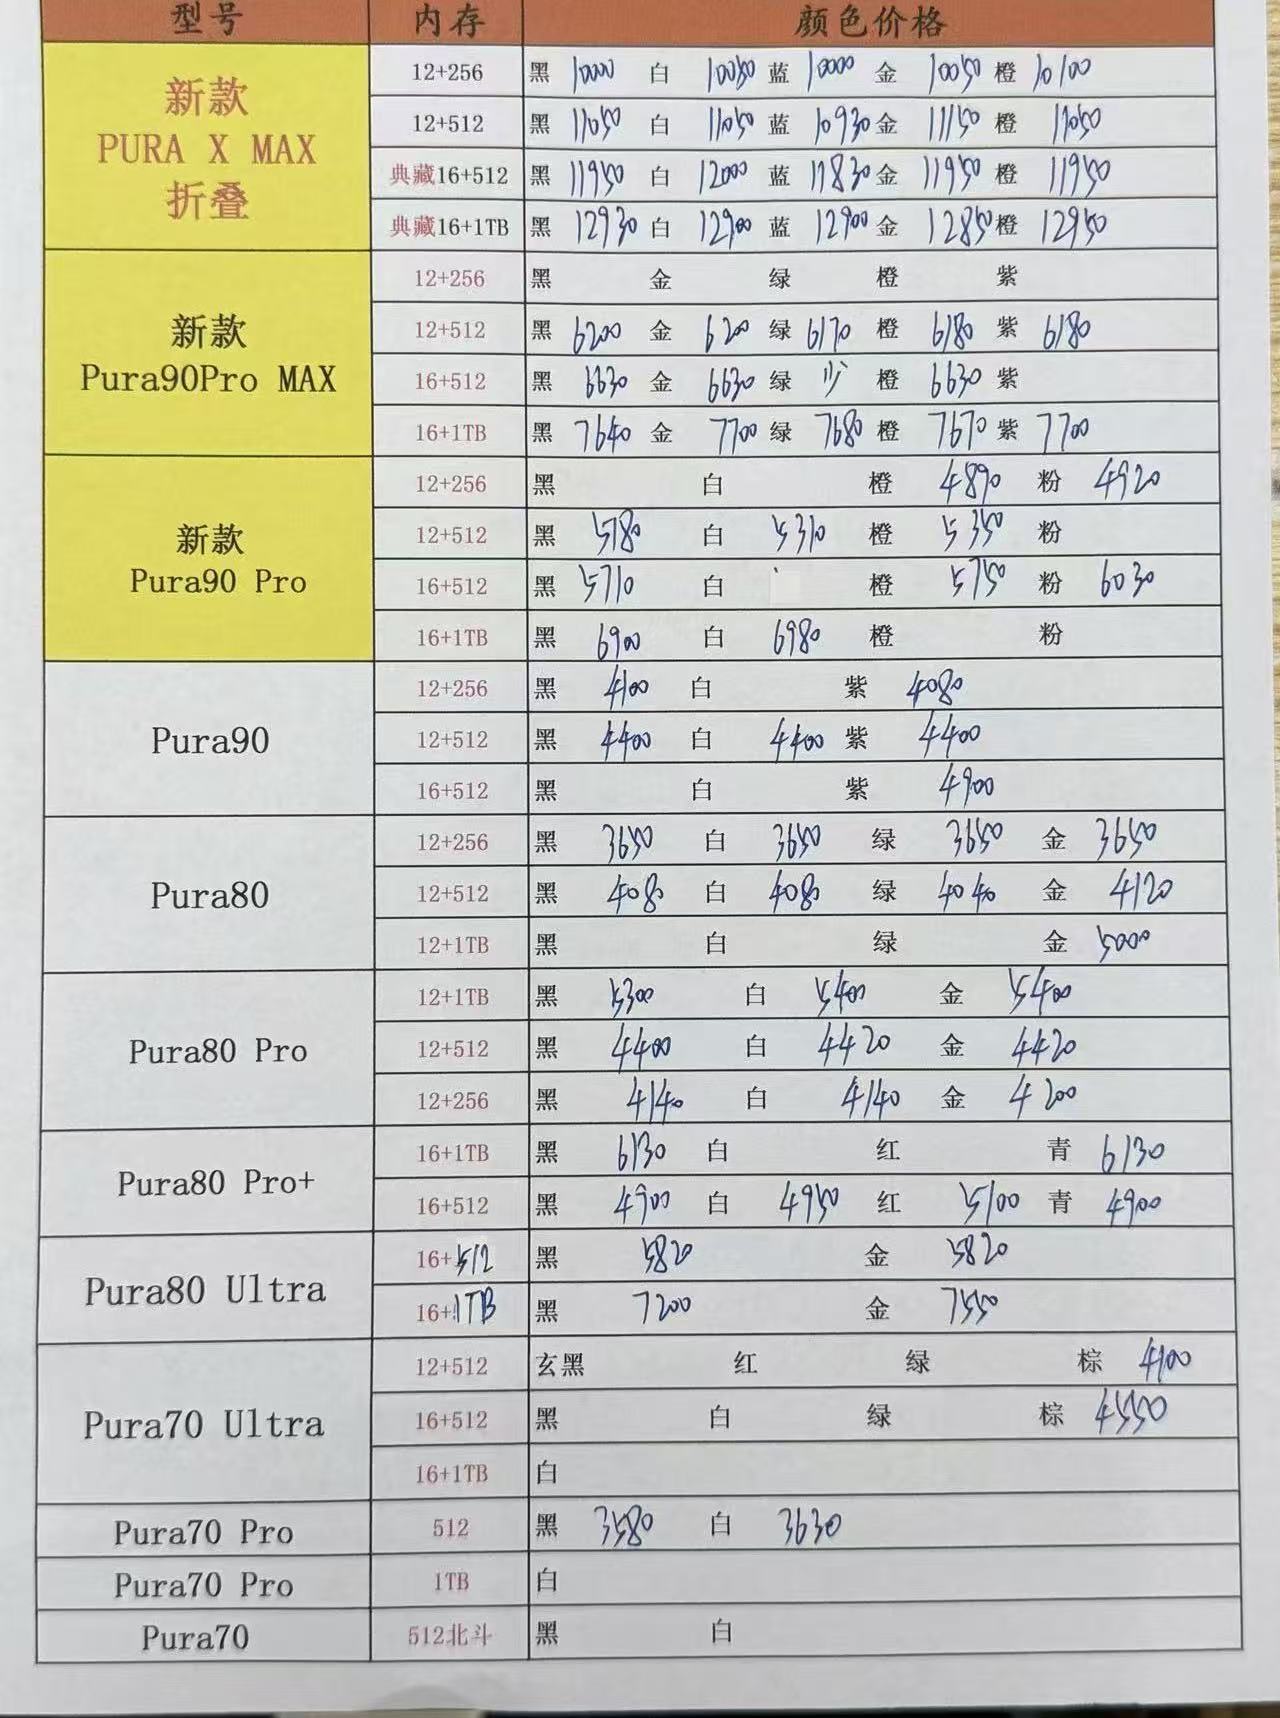 型号 内存 颜色价格
新款
PURA X MAX
折叠
12+256 黑 10000 白 10050 蓝 10000 金 10050 橙 10100
12+512 黑 11050 白 11050 蓝 10930 金 11150 橙 11050
典藏16+512 黑 11950 白 12000 蓝 11830 金 11950 橙 11950
典藏16+1TB 黑 12930 白 12900 蓝 12900 金 12850 橙 12950
新款
Pura90Pro MAX
12+256 黑 金 绿 橙 紫
12+512 黑 6200 金 6200 绿 6170 橙 6180 紫 6180
16+512 黑 6630 金 6630 绿 少 橙 6630 紫
16+1TB 黑 7640 金 7700 绿 7680 橙 7670 紫 7700
新款
Pura90 Pro
12+256 黑 白 橙 4890 粉 4920
12+512 黑 5180 白 5310 橙 5350 粉
16+512 黑 5710 白 橙 5750 粉 6030
16+1TB 黑 6900 白 6980 橙 粉
Pura90
12+256 黑 4100 白 紫 4080
12+512 黑 4400 白 4400 紫 4400
16+512 黑 白 紫 4900
Pura80
12+256 黑 3650 白 3650 绿 3650 金 3650
12+512 黑 4080 白 4080 绿 4040 金 4120
12+1TB 黑 白 绿 金 5000
Pura80 Pro
12+1TB 黑 5300 白 5400 金 5400
12+512 黑 4400 白 4420 金 4420
12+256 黑 4140 白 4140 金 4200
Pura80 Pro+
16+1TB 黑 6130 白 红 青 6130
16+512 黑 4900 白 4950 红 5100 青 4900
Pura80 Ultra
16+512 黑 5820 金 5820
16+1TB 黑 7200 金 7550
Pura70 Ultra
12+512 玄黑 红 绿 棕 4100
16+512 黑 白 绿 棕 4550
16+1TB 白
Pura70 Pro 512 黑 3580 白 3630
Pura70 Pro 1TB 白
Pura70 512北斗 黑 白